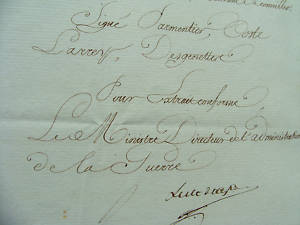 Signé Parmentier, Coste
Larrey, Desgenettes
Pour Extrait conforme,
Le Ministre Directeur de l'administration
de la Guerre